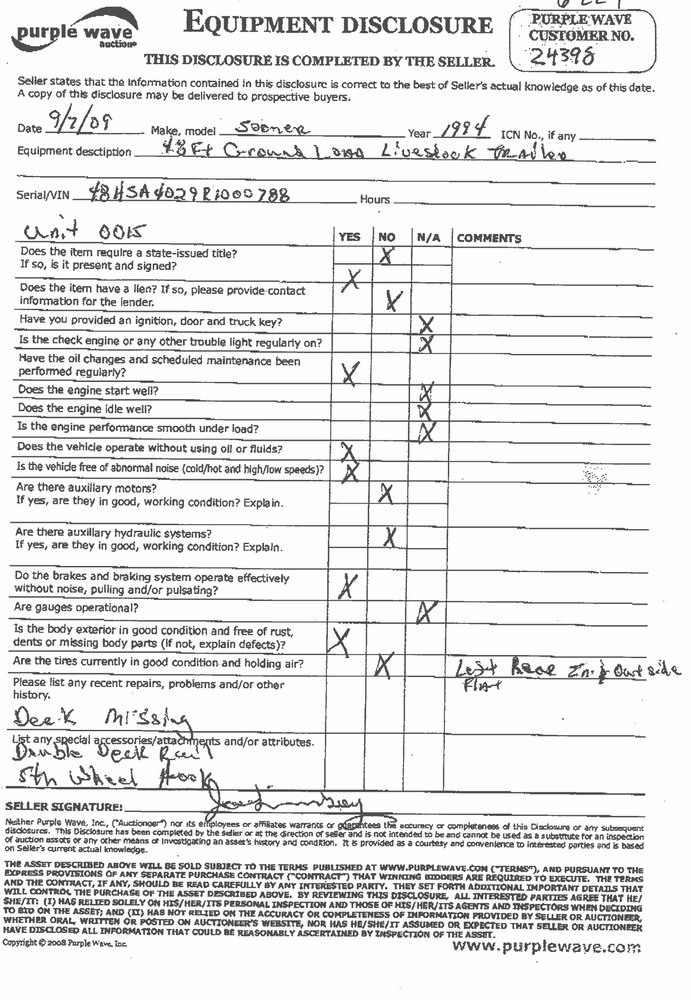 purple wave
auction
EQUIPMENT DISCLOSURE
PURPLE WAVE
CUSTOMER NO.
24398
THIS DISCLOSURE IS COMPLETED BY THE SELLER.
Seller states that the information contained in this disclosure is correct to the best of Seller's actual knowledge as of this date.
A copy of this disclosure may be delivered to prospective buyers.
Date 9/7/09 Make, model Sooner Year 1994 ICN No., if any
Equipment desctiption 48Ft Ground Load Livestock Trailer
Serial/VIN 48HSA4029R1000788 Hours
Unit 0015
YES NO N/A COMMENTS
Does the item require a state-issued title? X
If so, is it present and signed? X
Does the item have a lien? If so, please provide contact
information for the lender. X
Have you provided an ignition, door and truck key? X
Is the check engine or any other trouble light regularly on? X
Have the oil changes and scheduled maintenance been
performed regularly? X
Does the engine start well? X
Does the engine idle well? X
Is the engine performance smooth under load? X
Does the vehicle operate without using oil or fluids? X
Is the vehicle free of abnormal noise (cold/hot and high/low speeds)? X
Are there auxiliary motors? X
If yes, are they in good, working condition? Explain.
Are there auxiliary hydraulic systems? X
If yes, are they in good, working condition? Explain.
Do the brakes and braking system operate effectively
without noise, pulling and/or pulsating? X
Are gauges operational? X
Is the body exterior in good condition and free of rust,
dents or missing body parts (if not, explain defects)? X
Are the tires currently in good condition and holding air? X Left Rear In & Out side
Flat
Please list any recent repairs, problems and/or other
history.
Deck Missing
List any special accessories/attachments and/or attributes.
Double Deck Rail
5th Wheel Hook
SELLER SIGNATURE:
Neither Purple Wave, Inc., ("Auctioneer") nor its employees or affiliates warrants or guarantees the accuracy or completeness of this Disclosure or any subsequent
disclosures. This Disclosure has been completed by the seller or at the direction of seller and is not intended to be and cannot be used as a substitute for an inspection
of auction assets or any other means of investigating an asset's history and condition. It is provided as a courtesy and convenience to interested parties and is based
on Seller's current actual knowledge.
THE ASSET DESCRIBED ABOVE WILL BE SOLD SUBJECT TO THE TERMS PUBLISHED AT WWW.PURPLEWAVE.COM ("TERMS"), AND PURSUANT TO THE
EXPRESS PROVISIONS OF ANY SEPARATE PURCHASE CONTRACT ("CONTRACT") THAT WINNING BIDDERS ARE REQUIRED TO EXECUTE. THE TERMS
AND THE CONTRACT, IF ANY, SHOULD BE READ CAREFULLY BY ANY INTERESTED PARTY. THEY SET FORTH ADDITIONAL IMPORTANT DETAILS THAT
WILL CONTROL THE PURCHASE OF THE ASSET DESCRIBED ABOVE. BY REVIEWING THIS DISCLOSURE, ALL INTERESTED PARTIES AGREE THAT HE/
SHE/IT: (I) HAS RELIED SOLELY ON HIS/HER/ITS PERSONAL INSPECTION AND THOSE OF HIS/HER/ITS AGENTS AND INSPECTORS WHEN DECIDING
TO BID ON THE ASSET; AND (II) HAS NOT RELIED ON THE ACCURACY OR COMPLETENESS OF INFORMATION PROVIDED BY SELLER OR AUCTIONEER,
WHETHER ORAL, WRITTEN OR POSTED ON AUCTIONEER'S WEBSITE, NOR HAS HE/SHE/IT ASSUMED OR EXPECTED THAT SELLER OR AUCTIONEER
HAVE DISCLOSED ALL INFORMATION THAT COULD BE REASONABLY ASCERTAINED BY INSPECTION OF THE ASSET.
Copyright © 2008 Purple Wave, Inc.
www.purplewave.com